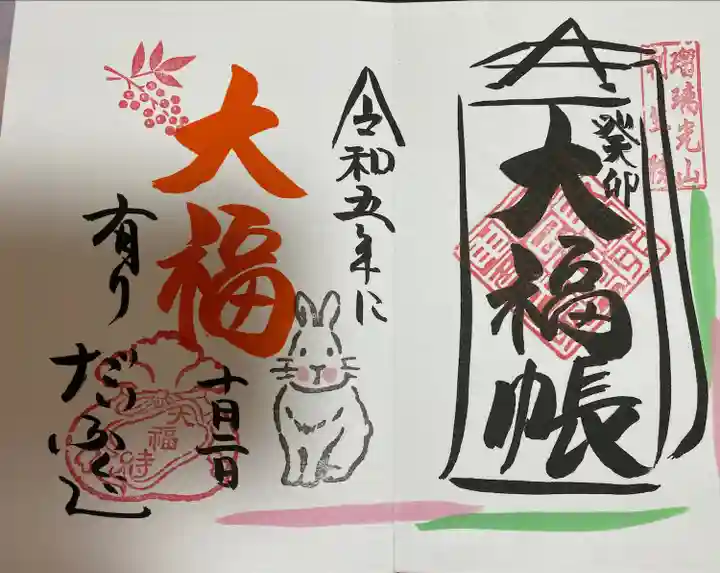 瑠璃光山
利生院
癸卯
大福帳
令和五年に
大福
有り
十月二日
だいふくじ
大福寺